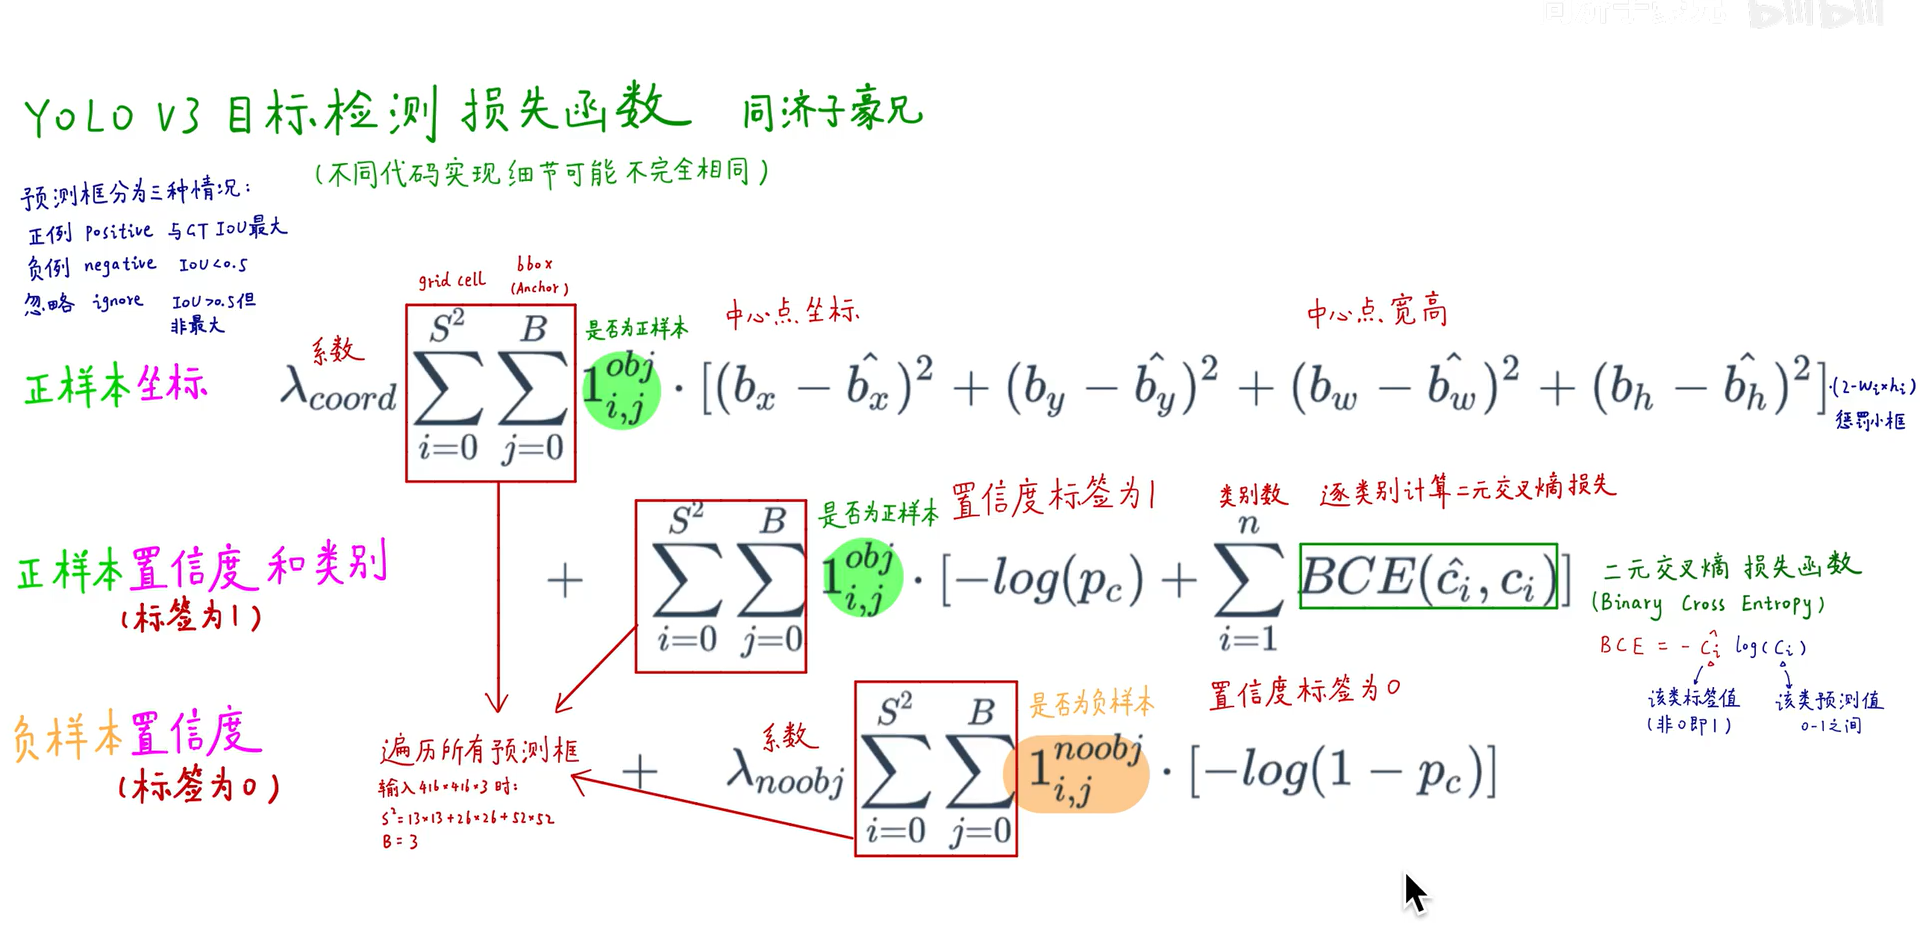 bilibili
YOLO V3 目标检测 损失函数 同济子豪兄
(不同代码实现细节可能不完全相同)
预测框分为三种情况:
正例 positive 与GT IOU最大
负例 negative IoU<0.5
忽略 ignore IoU>0.5但
非最大
grid cell
bbox
(Anchor)
系数
是否为正样本
中心点坐标
中心点宽高
正样本坐标
λ_{coord} \sum_{i=0}^{S^2} \sum_{j=0}^{B} 1_{i,j}^{obj} · [(b_x − \hat{b_x})^2 + (b_y − \hat{b_y})^2 + (b_w − \hat{b_w})^2 + (b_h − \hat{b_h})^2]·(2-w_i×h_i)
惩罚小框
是否为正样本
置信度标签为1
类别数
逐类别计算二元交叉熵损失
正样本置信度和类别
(标签为1)
+ \sum_{i=0}^{S^2} \sum_{j=0}^{B} 1_{i,j}^{obj} · [−log(p_c) + \sum_{i=1}^{n} BCE(\hat{c}_i, c_i)]
二元交叉熵 损失函数
(Binary Cross Entropy)
BCE = - \hat{c_i} log(c_i)
该类标签值
(非0即1)
该类预测值
0-1之间
系数
是否为负样本
置信度标签为0
负样本置信度
(标签为0)
+ λ_{noobj} \sum_{i=0}^{S^2} \sum_{j=0}^{B} 1_{i,j}^{noobj} · [−log(1 − p_c)]
遍历所有预测框
输入416×416×3时:
S²=13×13+26×26+52×52
B=3